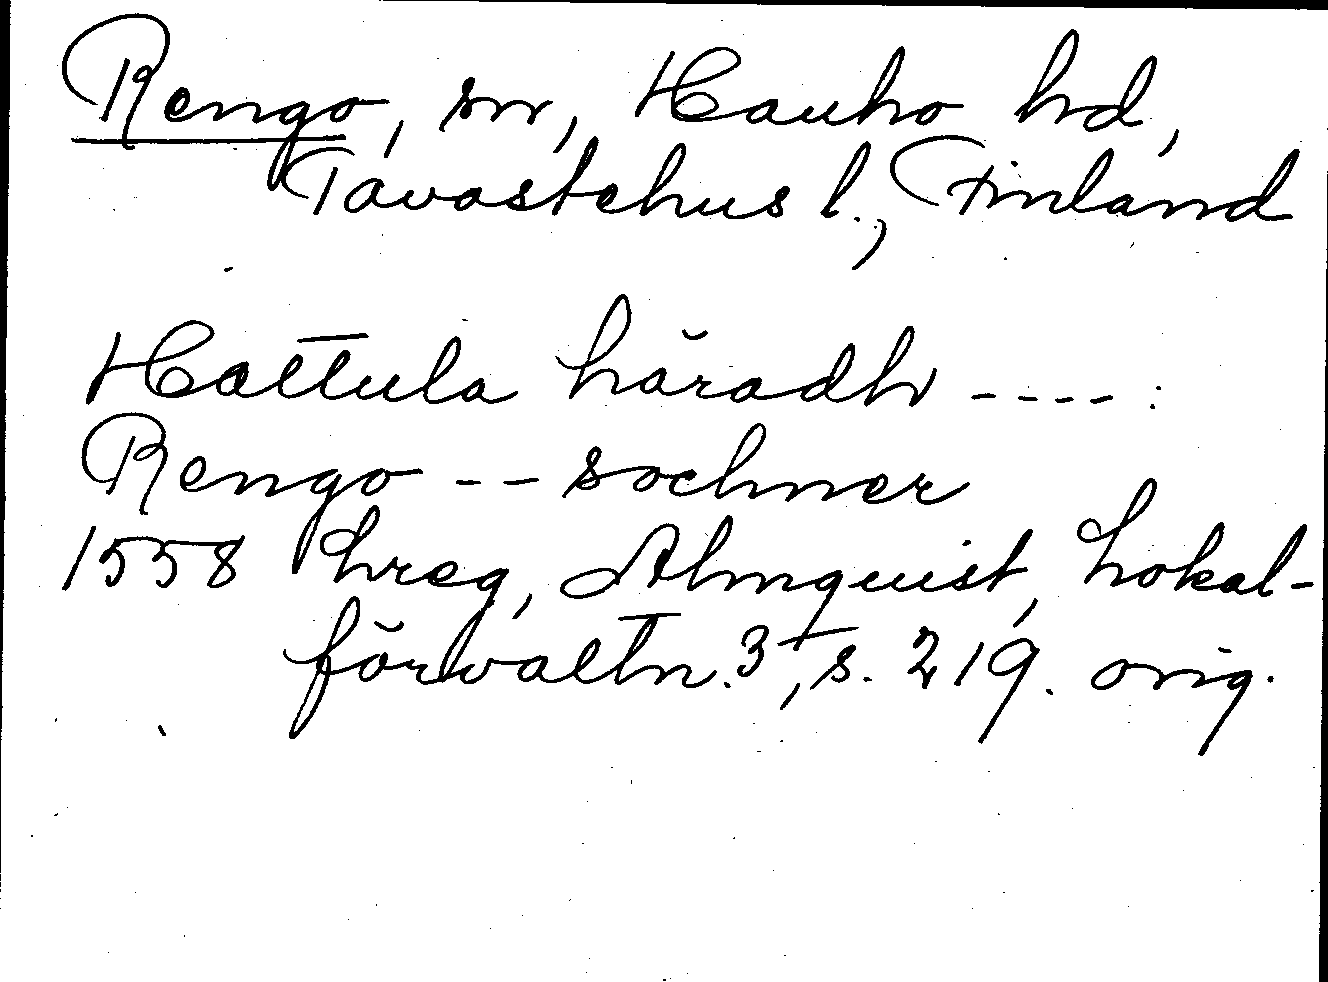 Rengo, sn, Hauho hd,
Tavastehus l., Finland
Hattula häradh ---- :
Rengo -- sochner
1558 hreg, Almquist, Lokal-
förvaltn. 3, s. 219. orig.